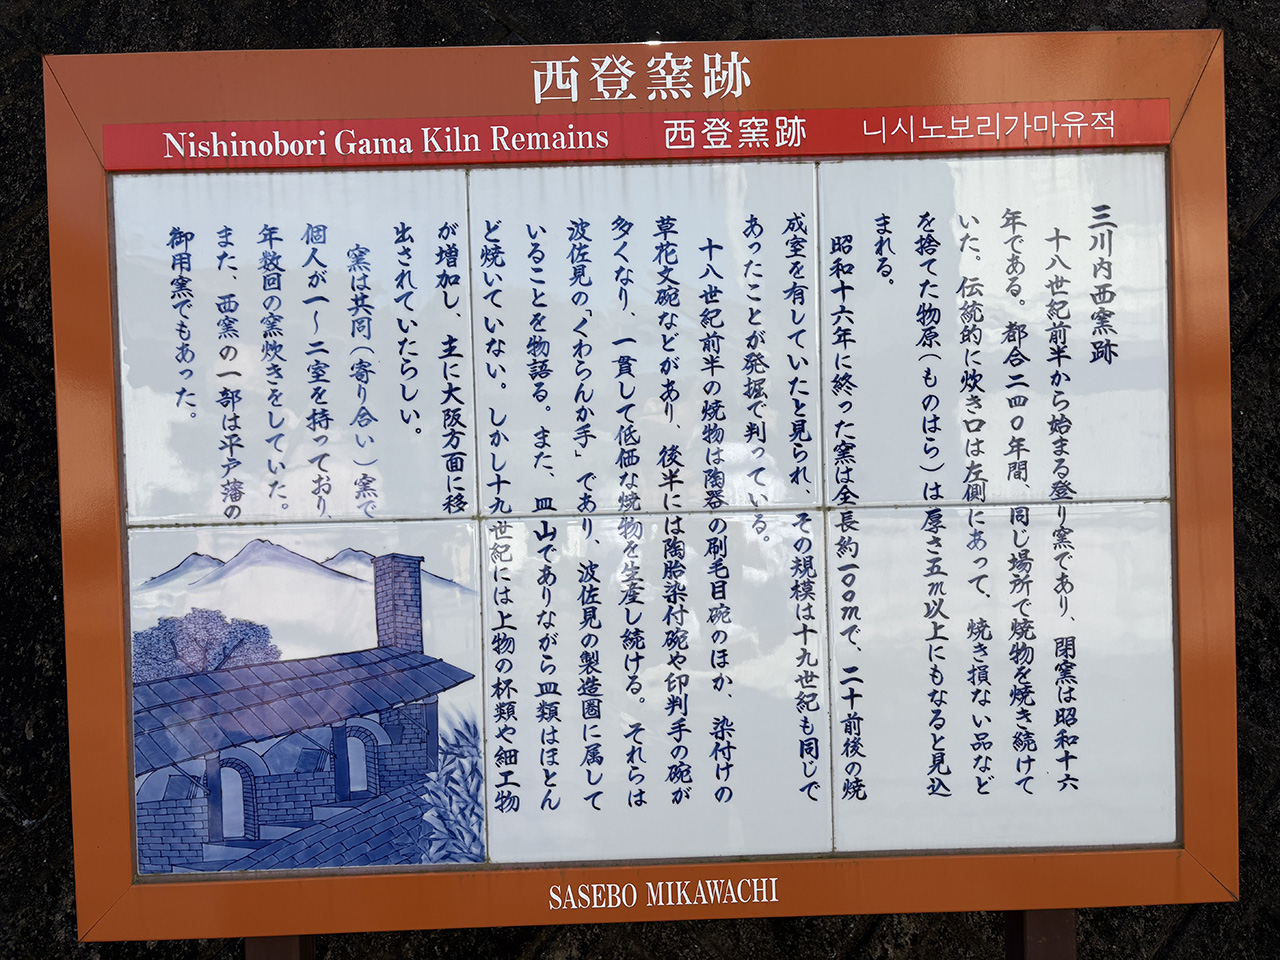 西登窯跡
Nishinobori Gama Kiln Remains 西登窯跡 니시노보리가마유적
三川内西窯跡
十八世紀前半から始まる登り窯であり、閉窯は昭和十六
年である。都合二四〇年間、同じ場所で焼物を焼き続けて
いた。伝統的に炊き口は左側にあって、焼き損ない品など
を捨てた物原(ものはら)は厚さ五m以上にもなると見込
まれる。
昭和十六年に終った窯は全長約一〇〇mで、二十前後の焼
成室を有していたと見られ、その規模は十九世紀も同じで
あったことが発掘で判っている。
十八世紀前半の焼物は陶器の刷毛目碗のほか、染付けの
草花文碗などがあり、後半には陶胎染付碗や印判手の碗が
多くなり、一貫して低価な焼物を生産し続ける。それらは
波佐見の「くわらんか手」であり、波佐見の製造圏に属して
いることを物語る。また、皿山でありながら皿類はほとん
ど焼いていない。しかし十九世紀には上物の杯類や細工物
が増加し、主に大阪方面に移
出されていたらしい。
窯は共同(寄り合い)窯で
個人が一〜二室を持っており、
年数回の窯炊きをしていた。
また、西窯の一部は平戸藩の
御用窯でもあった。
SASEBO MIKAWACHI